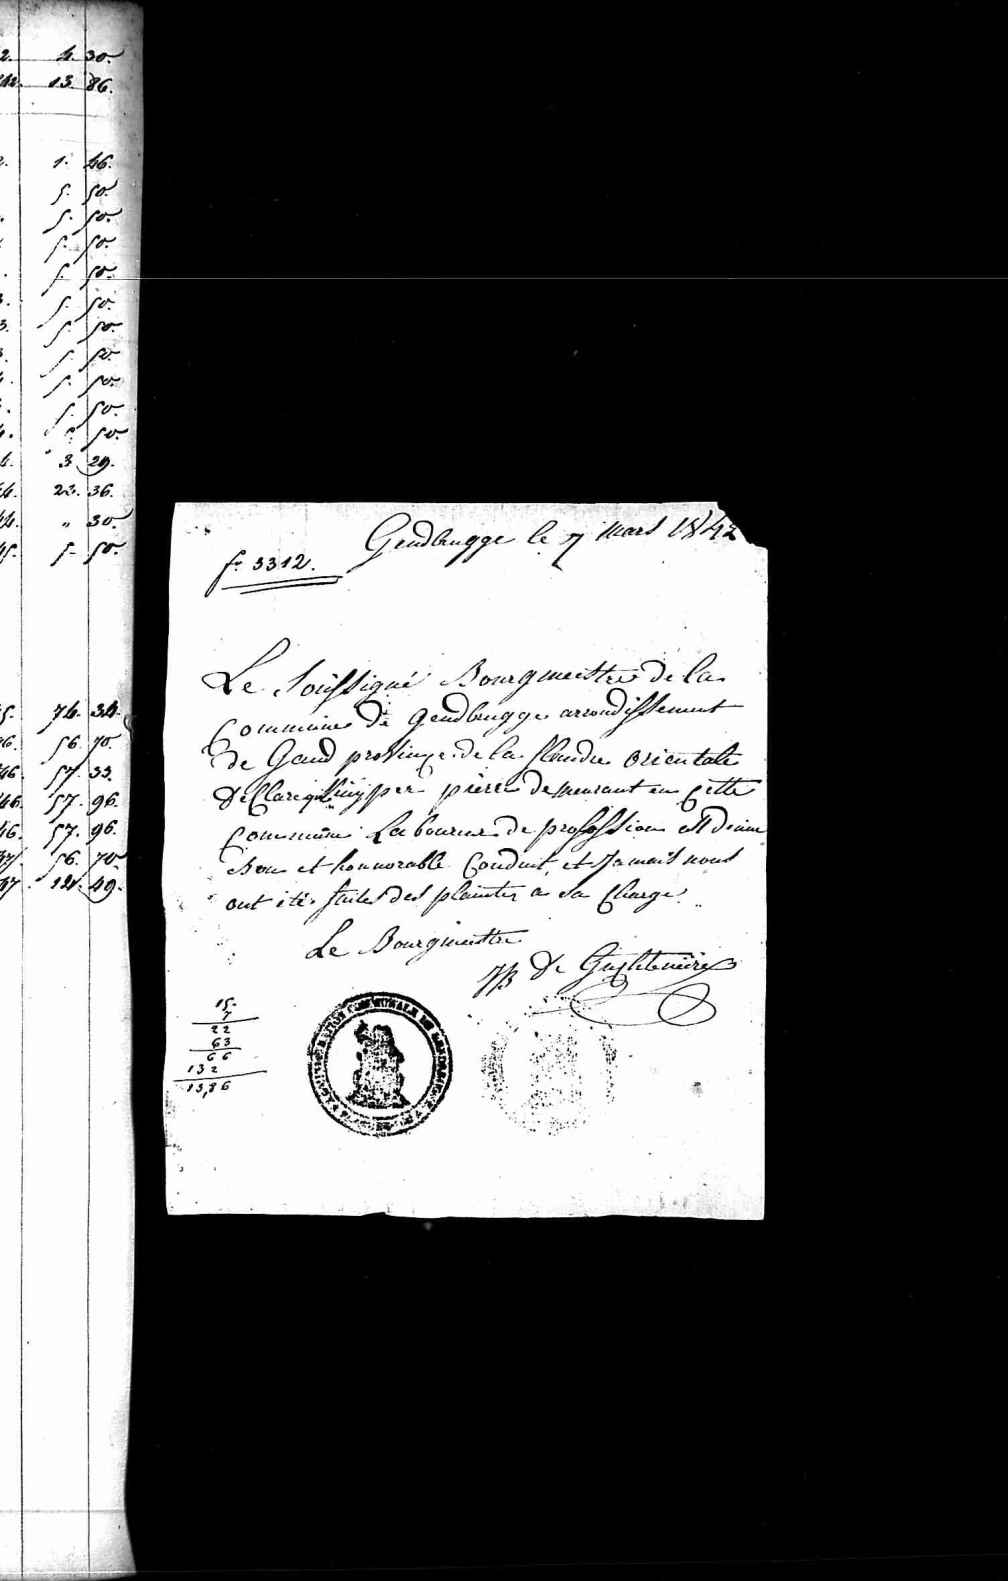 4. 30.
13. 86.
1. 46.
5. 50.
5. 50.
5. 50.
5. 50.
5. 50.
5. 50.
5. 50.
5. 50.
5. 50.
50.
3 29.
23. 36.
" 30.
5- 50.
74. 34.
56. 70.
57. 33.
57. 96.
57. 96.
56. 70
121. 49.
Gendbrugge le 7 mars 1842
f° 3312.
Le Soussigné Bourgmestre de la
Commune de Gendbrugge arrondissement
de Gand province de la flandre orientale
Declare que pierre demeurant en Cette
Commune Laboureur de profession est d'une
Bon et honnorable Conduit, et Jamais nous
ont été faites des plaintes a sa Charge.
Le Bourgmestre
JB De
15.
7
22
63
66
132
13,86